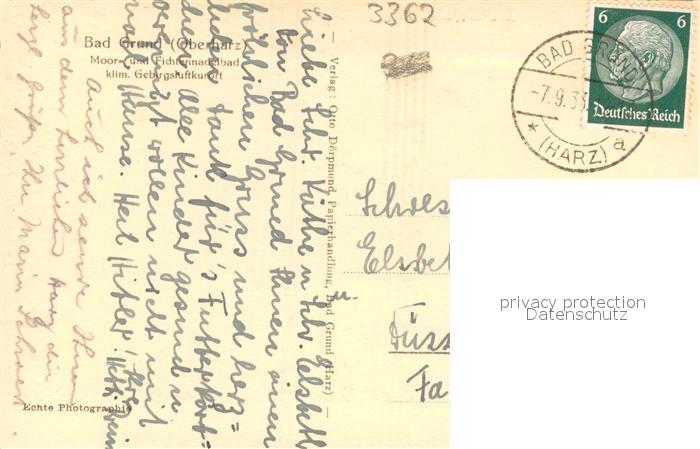 3362
Bad Grund (Oberharz)
Moor- und Fichtennadelbad
klim. Gebirgsluftkurort
6 6
Deutsches Reich
BAD GRUND
-7.9.33
* (HARZ) a
— Verlag: Otto Dörpmund, Papierhandlung, Bad Grund (Harz) —
Liebe Schw. Käthe u. Schw. Elsbeth
Von Bad Grund Ihnen einen
fröhlichen Gruss und herz=
lichen Dank für's
alle Kinder gesund u.
wollen nicht mit
nach Hause. Heil Hitler! Ihre
Auch ich sende Ihnen
aus dem herrlichen Harz die
herzl. Grüße. Ihr
Schwes
Elsbet
u.
Düss
Fa
Echte Photographie
privacy protection
Datenschutz